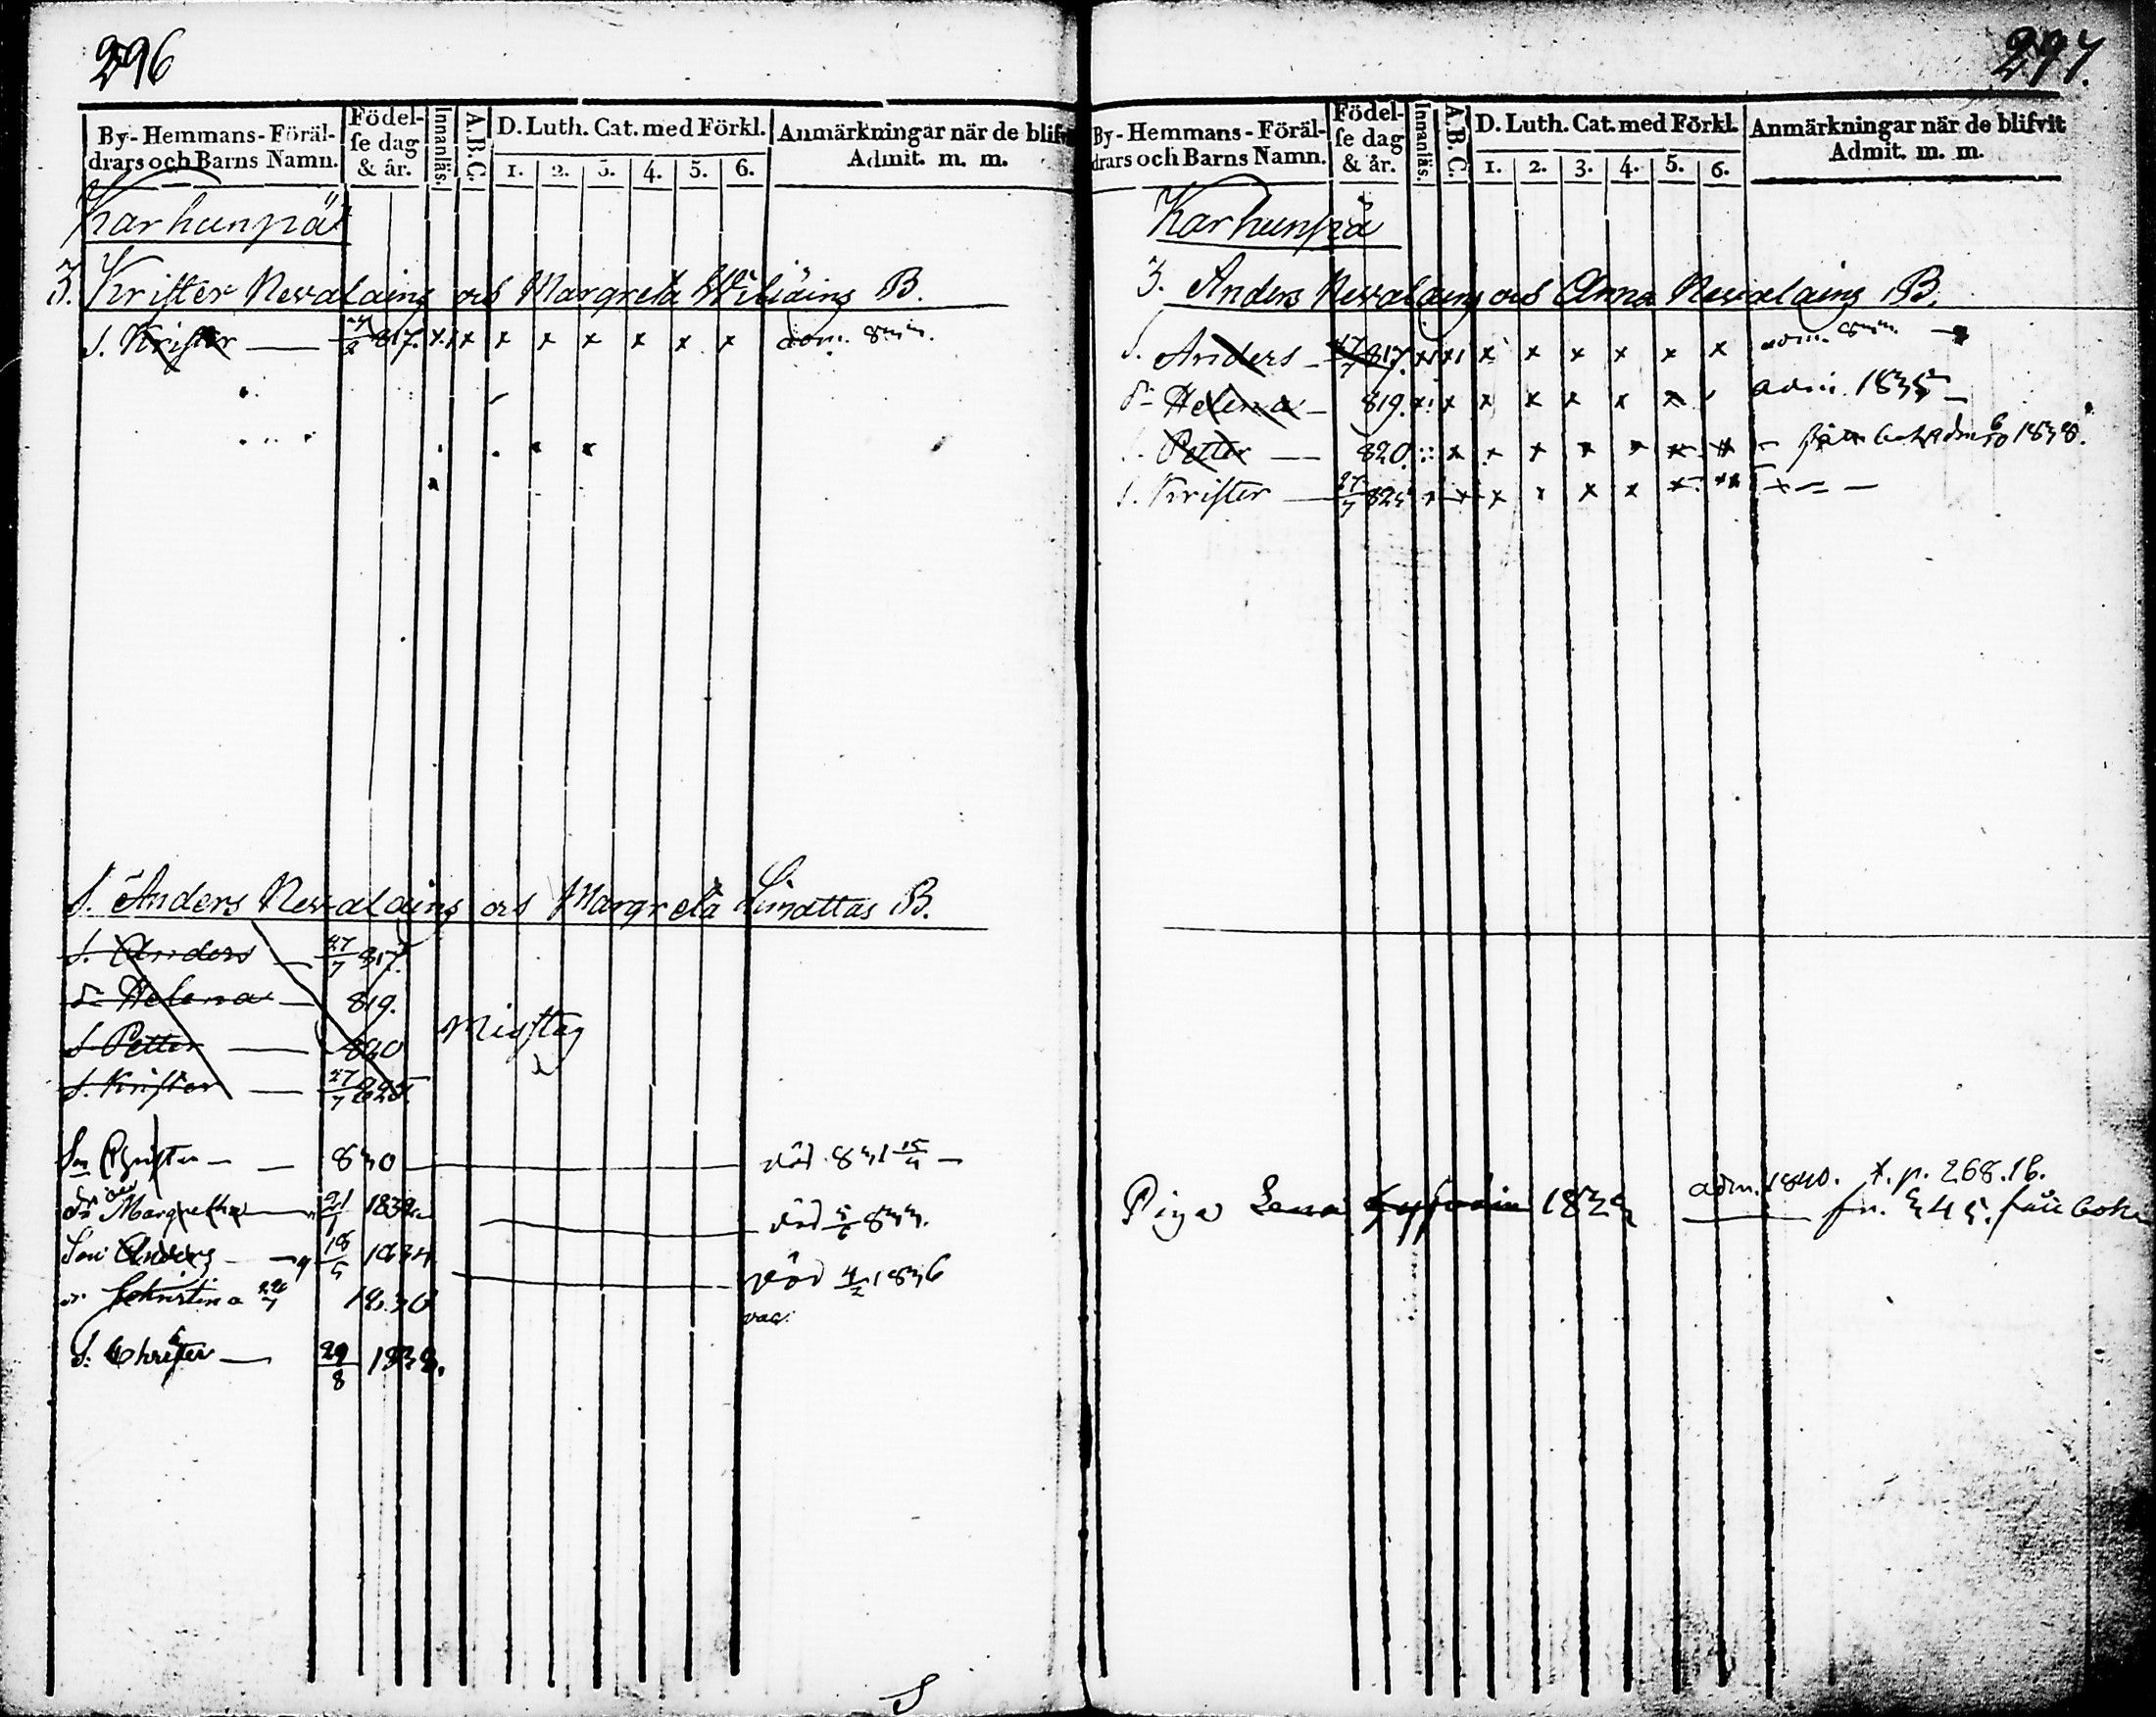 296
By- Hemmans- Föräl-
drars och Barns Namn.
Födel-
se dag
& år.
Innanläs.
A.B.C.
D. Luth. Cat. med Förkl.
1. 2. 3. 4. 5. 6.
Anmärkningar när de blifvit
Admit. m. m.
Karhunpä
3. Krister Nevalaing och Margreta B.
S. Krister — 817. x x x x x x x adm. 833.
S. Anders Nevalaing och Margreta Limattas B.
S. Anders — 27/7 817.
Dr Helena — 819.
S. Petter — 820
S. Krister — 27/7 825
Misstag
Son Christer — 830 — död 831 15/4 —
Dr Margretha — 21/1 1832 — död 5/6 833.
Son Anders — 18/5 1834 — död 4/2 1836
Christina 1836 vac.
S. Christer — 29/8 1838.
297.
By- Hemmans- Föräl-
drars och Barns Namn.
Födel-
se dag
& år.
Innanläs.
A.B.C.
D. Luth. Cat. med Förkl.
1. 2. 3. 4. 5. 6.
Anmärkningar när de blifvit
Admit. m. m.
Karhunpä
3. Anders Nevalaing och Anna Nevalaing B.
S. Anders — 27/7 817. x x x x x x x adm. 833. —
Dr Helena — 819. x x x x x x x adm. 1835 —
S. Petter — 820. x x x x x x x 1838.
S. Krister — 27/7 825 x x x x x x x
Piga Lena 1823 adm. 1840. x. p. 268. 16.
345.